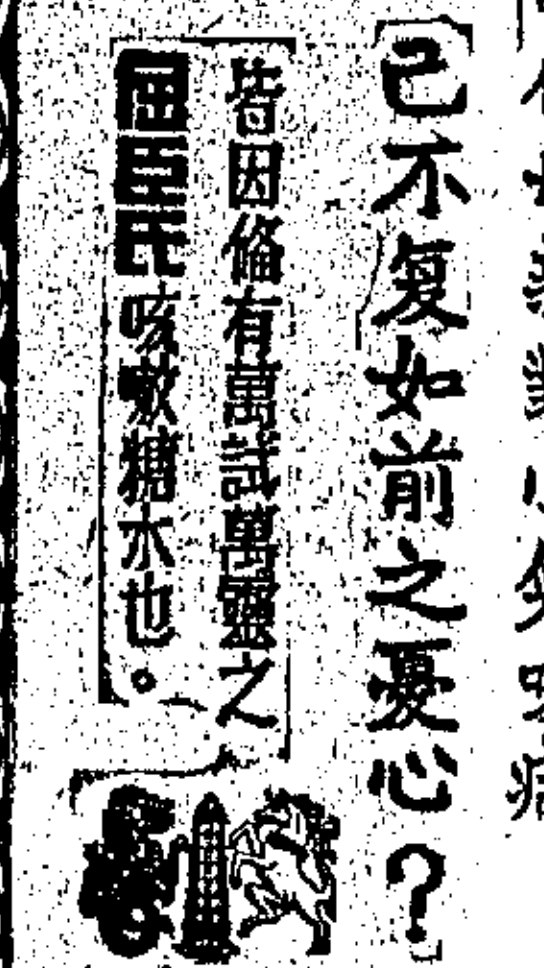 己不复如前之憂心？
皆因俻有萬試萬靈之
屈臣氏咳嗽糖水也。